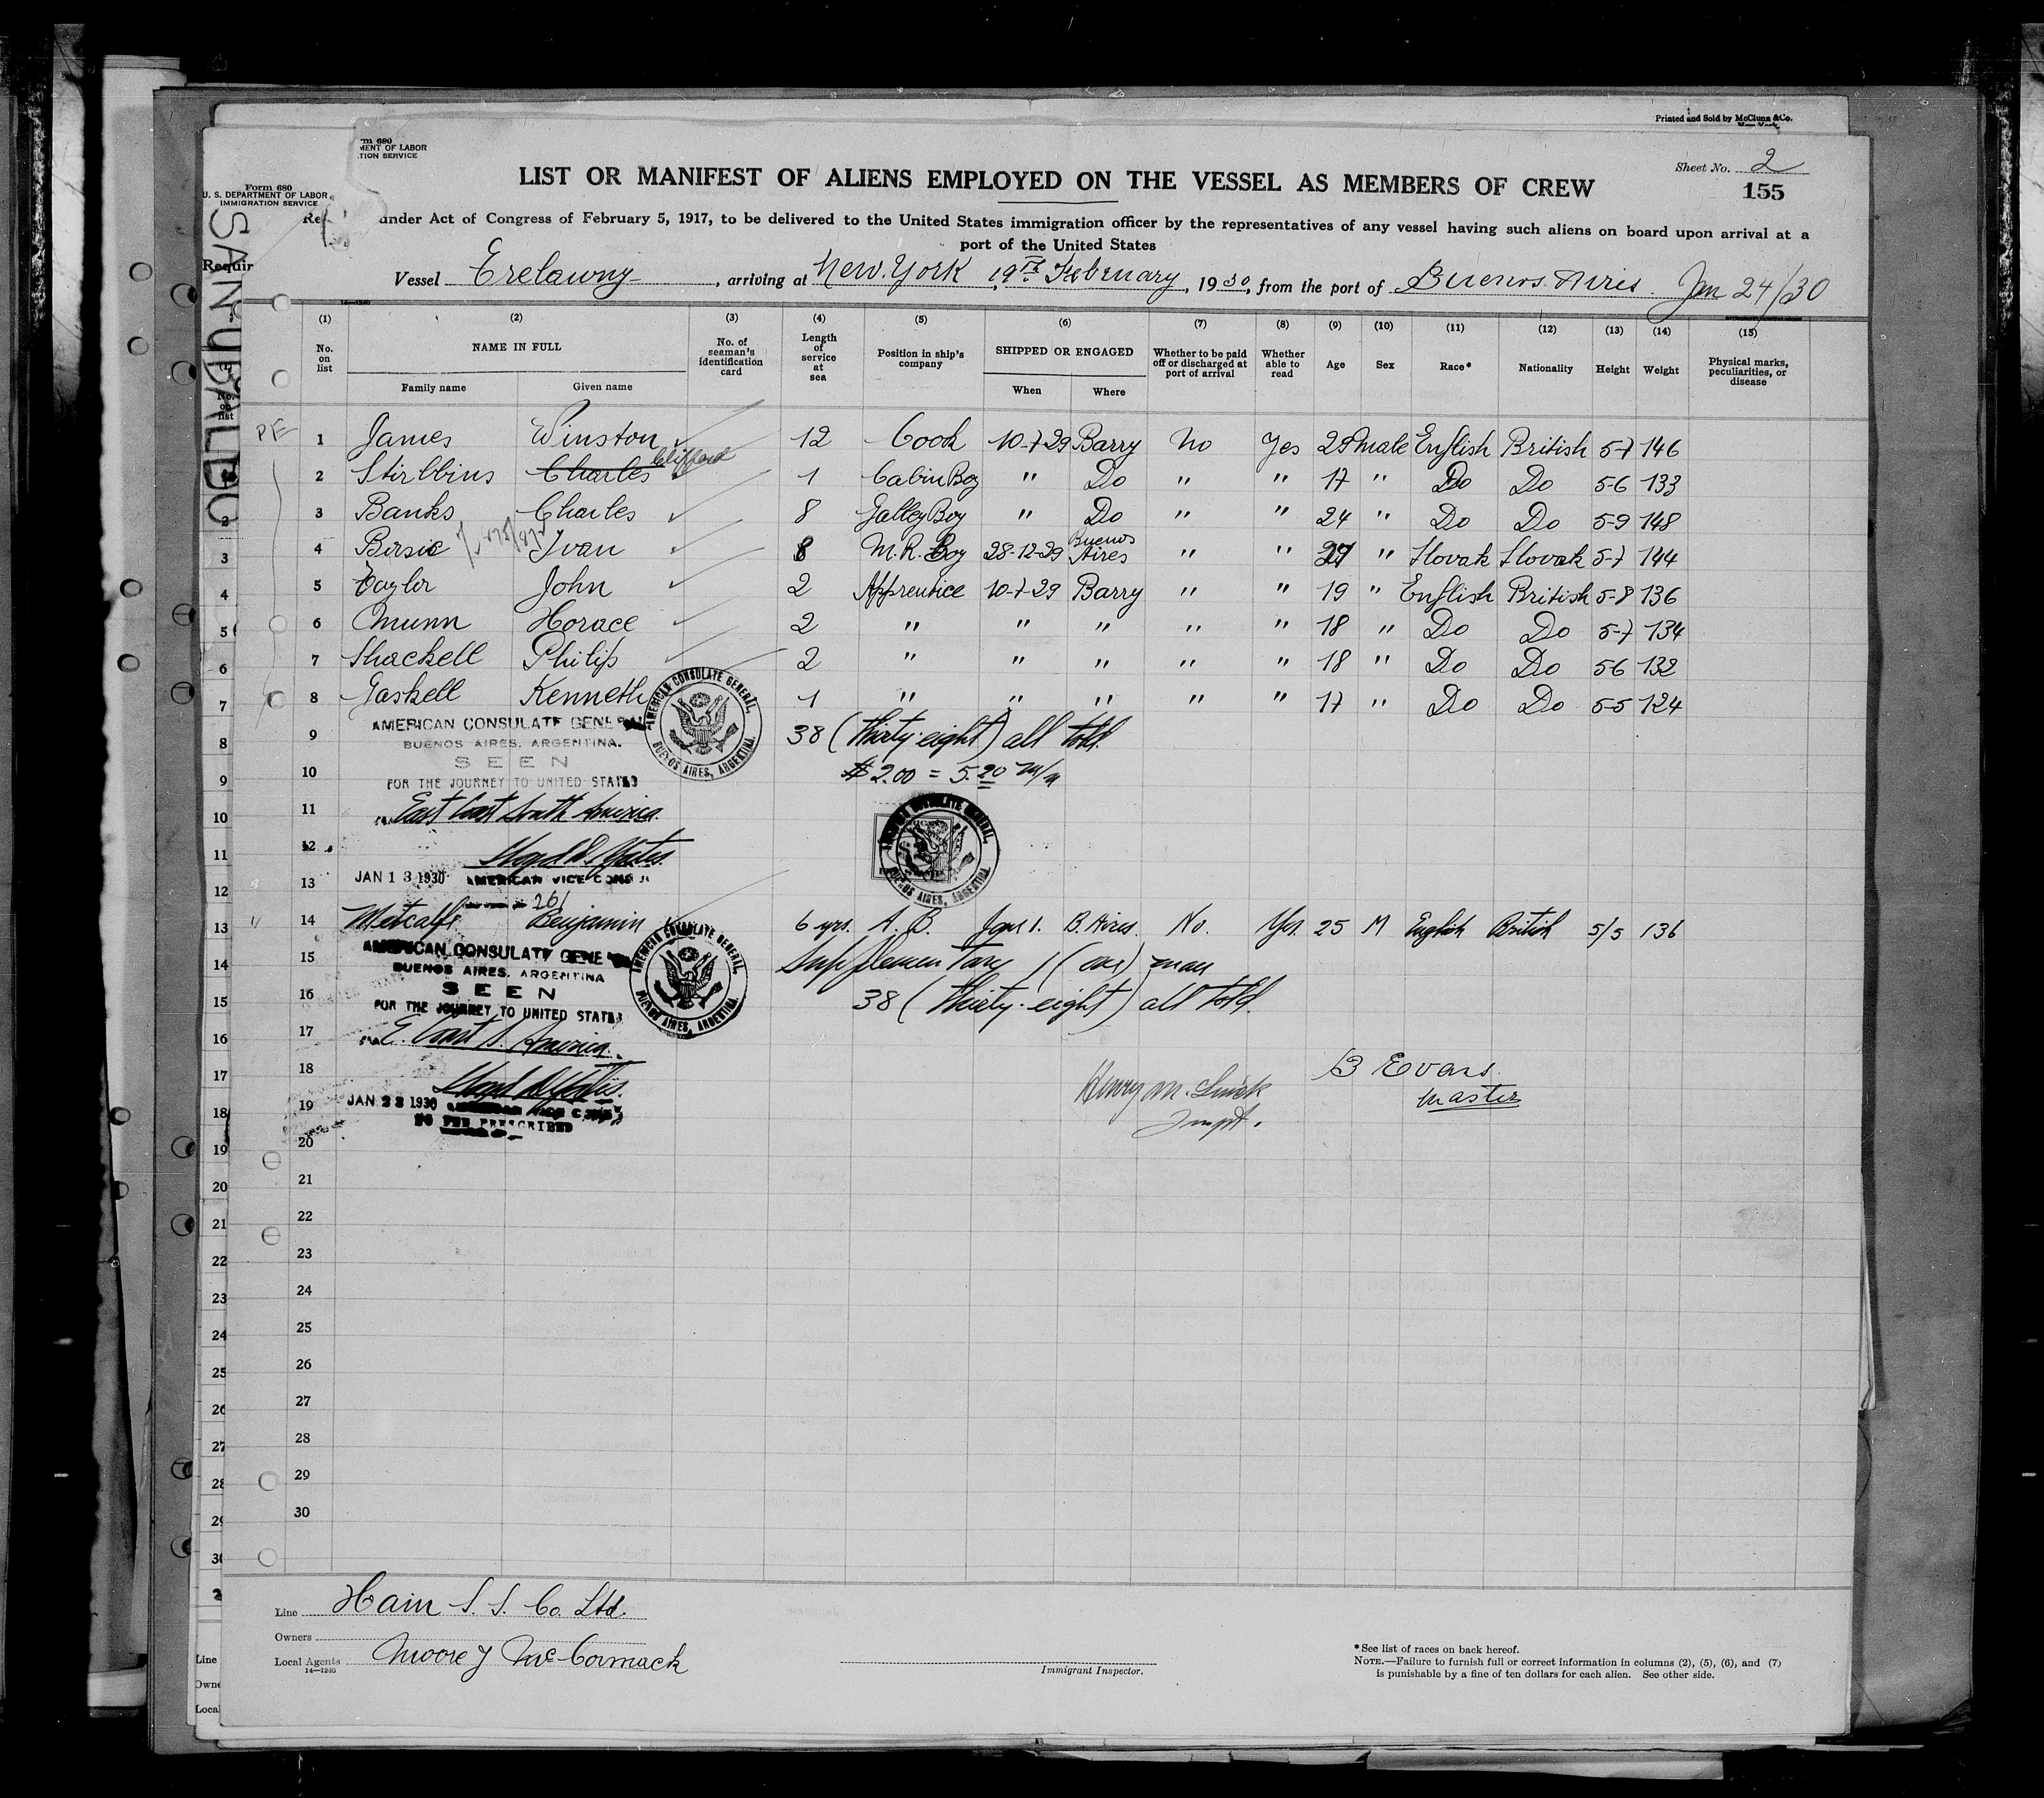 Printed and Sold by McClunn &Co.
Form 680
U. S. DEPARTMENT OF LABOR
IMMIGRATION SERVICE
rm 680
MENT OF LABOR
TION SERVICE
Sheet No. 2
155
LIST OR MANIFEST OF ALIENS EMPLOYED ON THE VESSEL AS MEMBERS OF CREW
under Act of Congress of February 5, 1917, to be delivered to the United States immigration officer by the representatives of any vessel having such aliens on board upon arrival at a
port of the United States
Requir
SAN UBALDO
Vessel Trelawny, arriving at New York 19th February, 1930, from the port of Buenos Aires. Jan 24/30
(1) (2) (3) (4) (5) (6) (7) (8) (9) (10) (11) (12) (13) (14) (15)
No. on list NAME IN FULL Family name Given name No. of seaman's identification card Length of service at sea Position in ship's company SHIPPED OR ENGAGED When Where Whether to be paid off or discharged at port of arrival Whether able to read Age Sex Race* Nationality Height Weight Physical marks, peculiarities, or disease
PE 1 James Winston 12 Cook 10-7-29 Barry No Yes 25 male English British 5-7 146
2 Stirbbins Charles Clifford 1 Cabin Boy " Do " " 17 " Do Do 5-6 133
3 Banks Charles 8 Galley Boy " Do " " 24 " Do Do 5-9 148
4 Birsic Ivan 8 M.R. Boy 28-12-29 Buenos Aires " " 27 " Slovak Slovak 5-7 144
5 Taylor John 2 Apprentice 10-7-29 Barry " " 19 " English British 5-8 136
6 Munn Horace 2 " " " " " 18 " Do Do 5-7 134
7 Shackell Philip 2 " " " " " 18 " Do Do 5-6 132
8 Gaskell Kenneth 1 " " " " " 17 " Do Do 5-5 124
AMERICAN CONSULATE GENERAL
9 38 (thirty-eight) all told.
BUENOS AIRES, ARGENTINA.
SEEN
10 $2.00 = 5.20 m/n
FOR THE JOURNEY TO UNITED STATES
11 East Coast South America.
AMERICAN CONSULATE GENERAL, BUENOS AIRES, ARGENTINA.
AMERICAN CONSULATE GENERAL, BUENOS AIRES, ARGENTINA.
12
13 JAN 13 1930 AMERICAN VICE CONSUL
261
" 14 Metcalfe Benjamin 6 yrs. A. B. Jan 1. B. Aires. No. Yes 25 M English British 5/5 136
AMERICAN CONSULATE GENERAL
15 Supplementary 1 (one) man
BUENOS AIRES, ARGENTINA
SEEN
16 38 (thirty-eight) all told.
FOR THE JOURNEY TO UNITED STATES
17 E. Coast S. America.
AMERICAN CONSULATE GENERAL, BUENOS AIRES, ARGENTINA.
18 B Evans.
Master
19 JAN 23 1930
Henry M.
Inspt.
20
21
22
23
24
25
26
27
28
29
30
Line Hain S. S. Co. Ltd.
Owners
Local Agents Moore & McCormack
14—1240
Immigrant Inspector.
*See list of races on back hereof.
NOTE.—Failure to furnish full or correct information in columns (2), (5), (6), and (7)
is punishable by a fine of ten dollars for each alien. See other side.